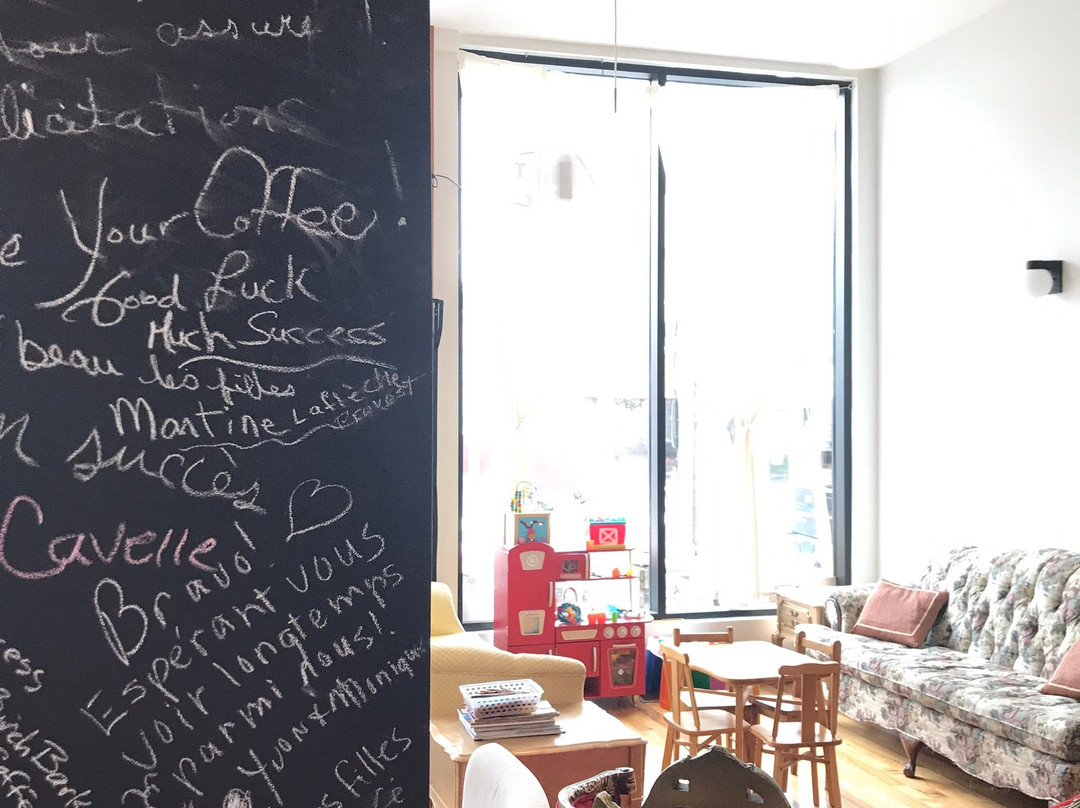 assuré !
licitations
Your Coffee !
Good Luck
Much Success
beau les filles
Martine Laflèche
succès
Cavelle
Bravo!
Espérant vous
voir longtemps
parmi nous!
Yvon & Monique
filles